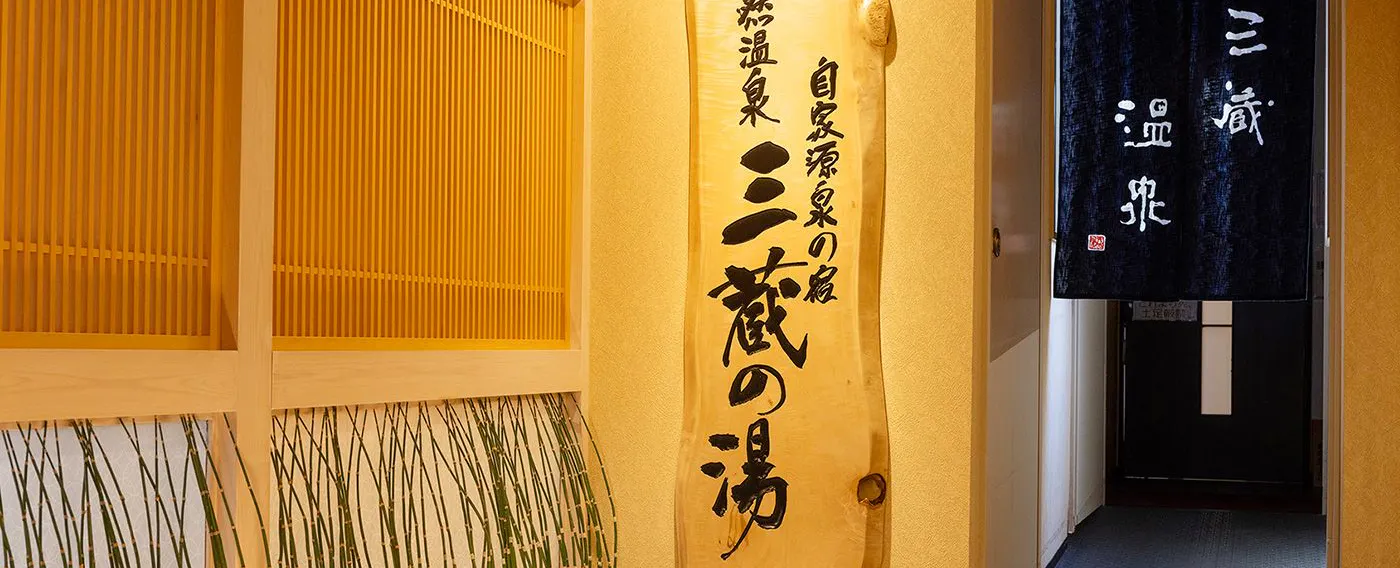 自家源泉の宿
然温泉 三蔵の湯
三蔵
温泉